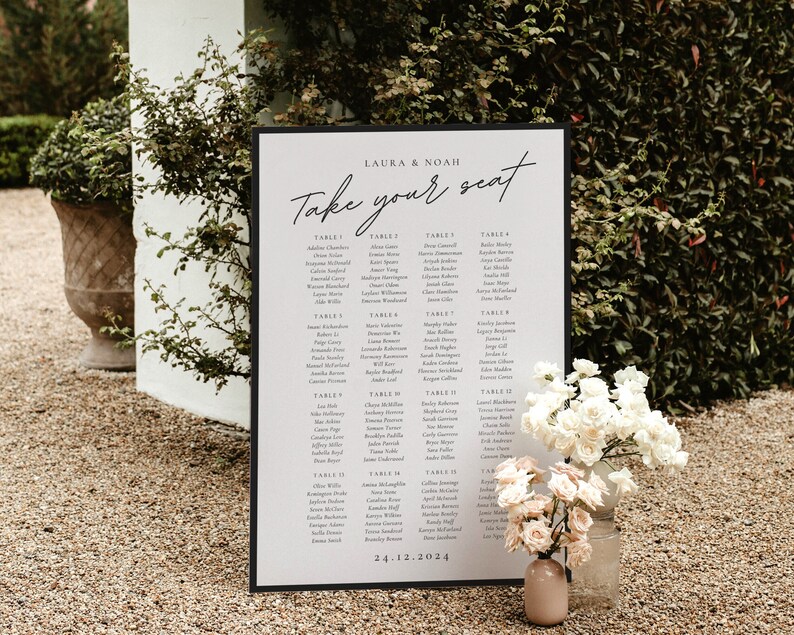 LAURA & NOAH
Take your seat
TABLE 1
Adaline Chambers
Orion Nolan
Issayana McDonald
Calvin Sanford
Emerald Carey
Watson Blanchard
Layne Marin
Aldo Willis
TABLE 2
Alexa Gates
Ermias Wang
Kairi Spears
Amair Vang
Madisyn Harrington
Omari Odom
Laylani Williamson
Emerson Woodward
TABLE 3
Drew Cantrell
Harris Zimmerman
Ariyah Jenkins
Declan Bender
Lilyana Roberts
Josiah Glass
Clare Hamilton
Jason Giles
TABLE 4
Bailee Mosley
Kayden Barron
Anya Castillo
Kai Shields
Analia Hill
Isaac Moya
Aarya McFarland
Dane Mueller
TABLE 5
Imani Richardson
Robert Li
Paige Casey
Armando Frost
Paula Stanley
Manuel McFarland
Annika Barton
Cassius Pittman
TABLE 6
Marie Valentine
Demetrius Wu
Liana Bennett
Leonardo Robertson
Harmony Rasmussen
Will Kerr
Baylee Bradford
Ander Leal
TABLE 7
Murphy Huber
Mac Rollins
Araceli Dorsey
Enoch Hughes
Sarah Dominguez
Kaden Cordova
Florence Strickland
Keegan Collins
TABLE 8
Kinsley Jacobson
Legacy Benjamin
Jianna Li
Jorge Gill
Jordan La
Damien Gill
Eden Maddox
Everest Cortes
TABLE 9
Lea Holt
Niko Holloway
Mae Askins
Cason Page
Cataleya Love
Jeffrey Miller
Isabella Boyd
Dean Boyer
TABLE 10
Chaya McMillan
Anthony Herrera
Ximena Petersen
Samson Turner
Brooklyn Padilla
Jaden Parrish
Tiana Noble
Jaime Underwood
TABLE 11
Ensley Roberson
Shepherd Gray
Sarah Garrison
Noe Monroe
Carly Guerrero
Bryce Meyer
Sara Fuller
Andre Dillon
TABLE 12
Laurel Blackburn
Teresa Harmon
Jacob
Chaim Solis
Miracle Pacheco
Erik Andrews
Anne
Cannon
TABLE 13
Olive Willis
Remington Drake
Jayleen Dodson
Estella Buchanan
Enrique Adams
Stella Dennis
Emma Smith
TABLE 14
Amina McLaughlin
Nova Stone
Catalina Rowe
Kamden Huff
Karsyn Wilkins
Aurora Guevara
Teresa Sandoval
Brantley Benson
TABLE 15
Collins Jennings
Corbin McGuire
April McIntosh
Kristian Barron
Marlowe Bentley
Randy Huff
Karsyn McFarland
Dane Jacobs
24.12.2024